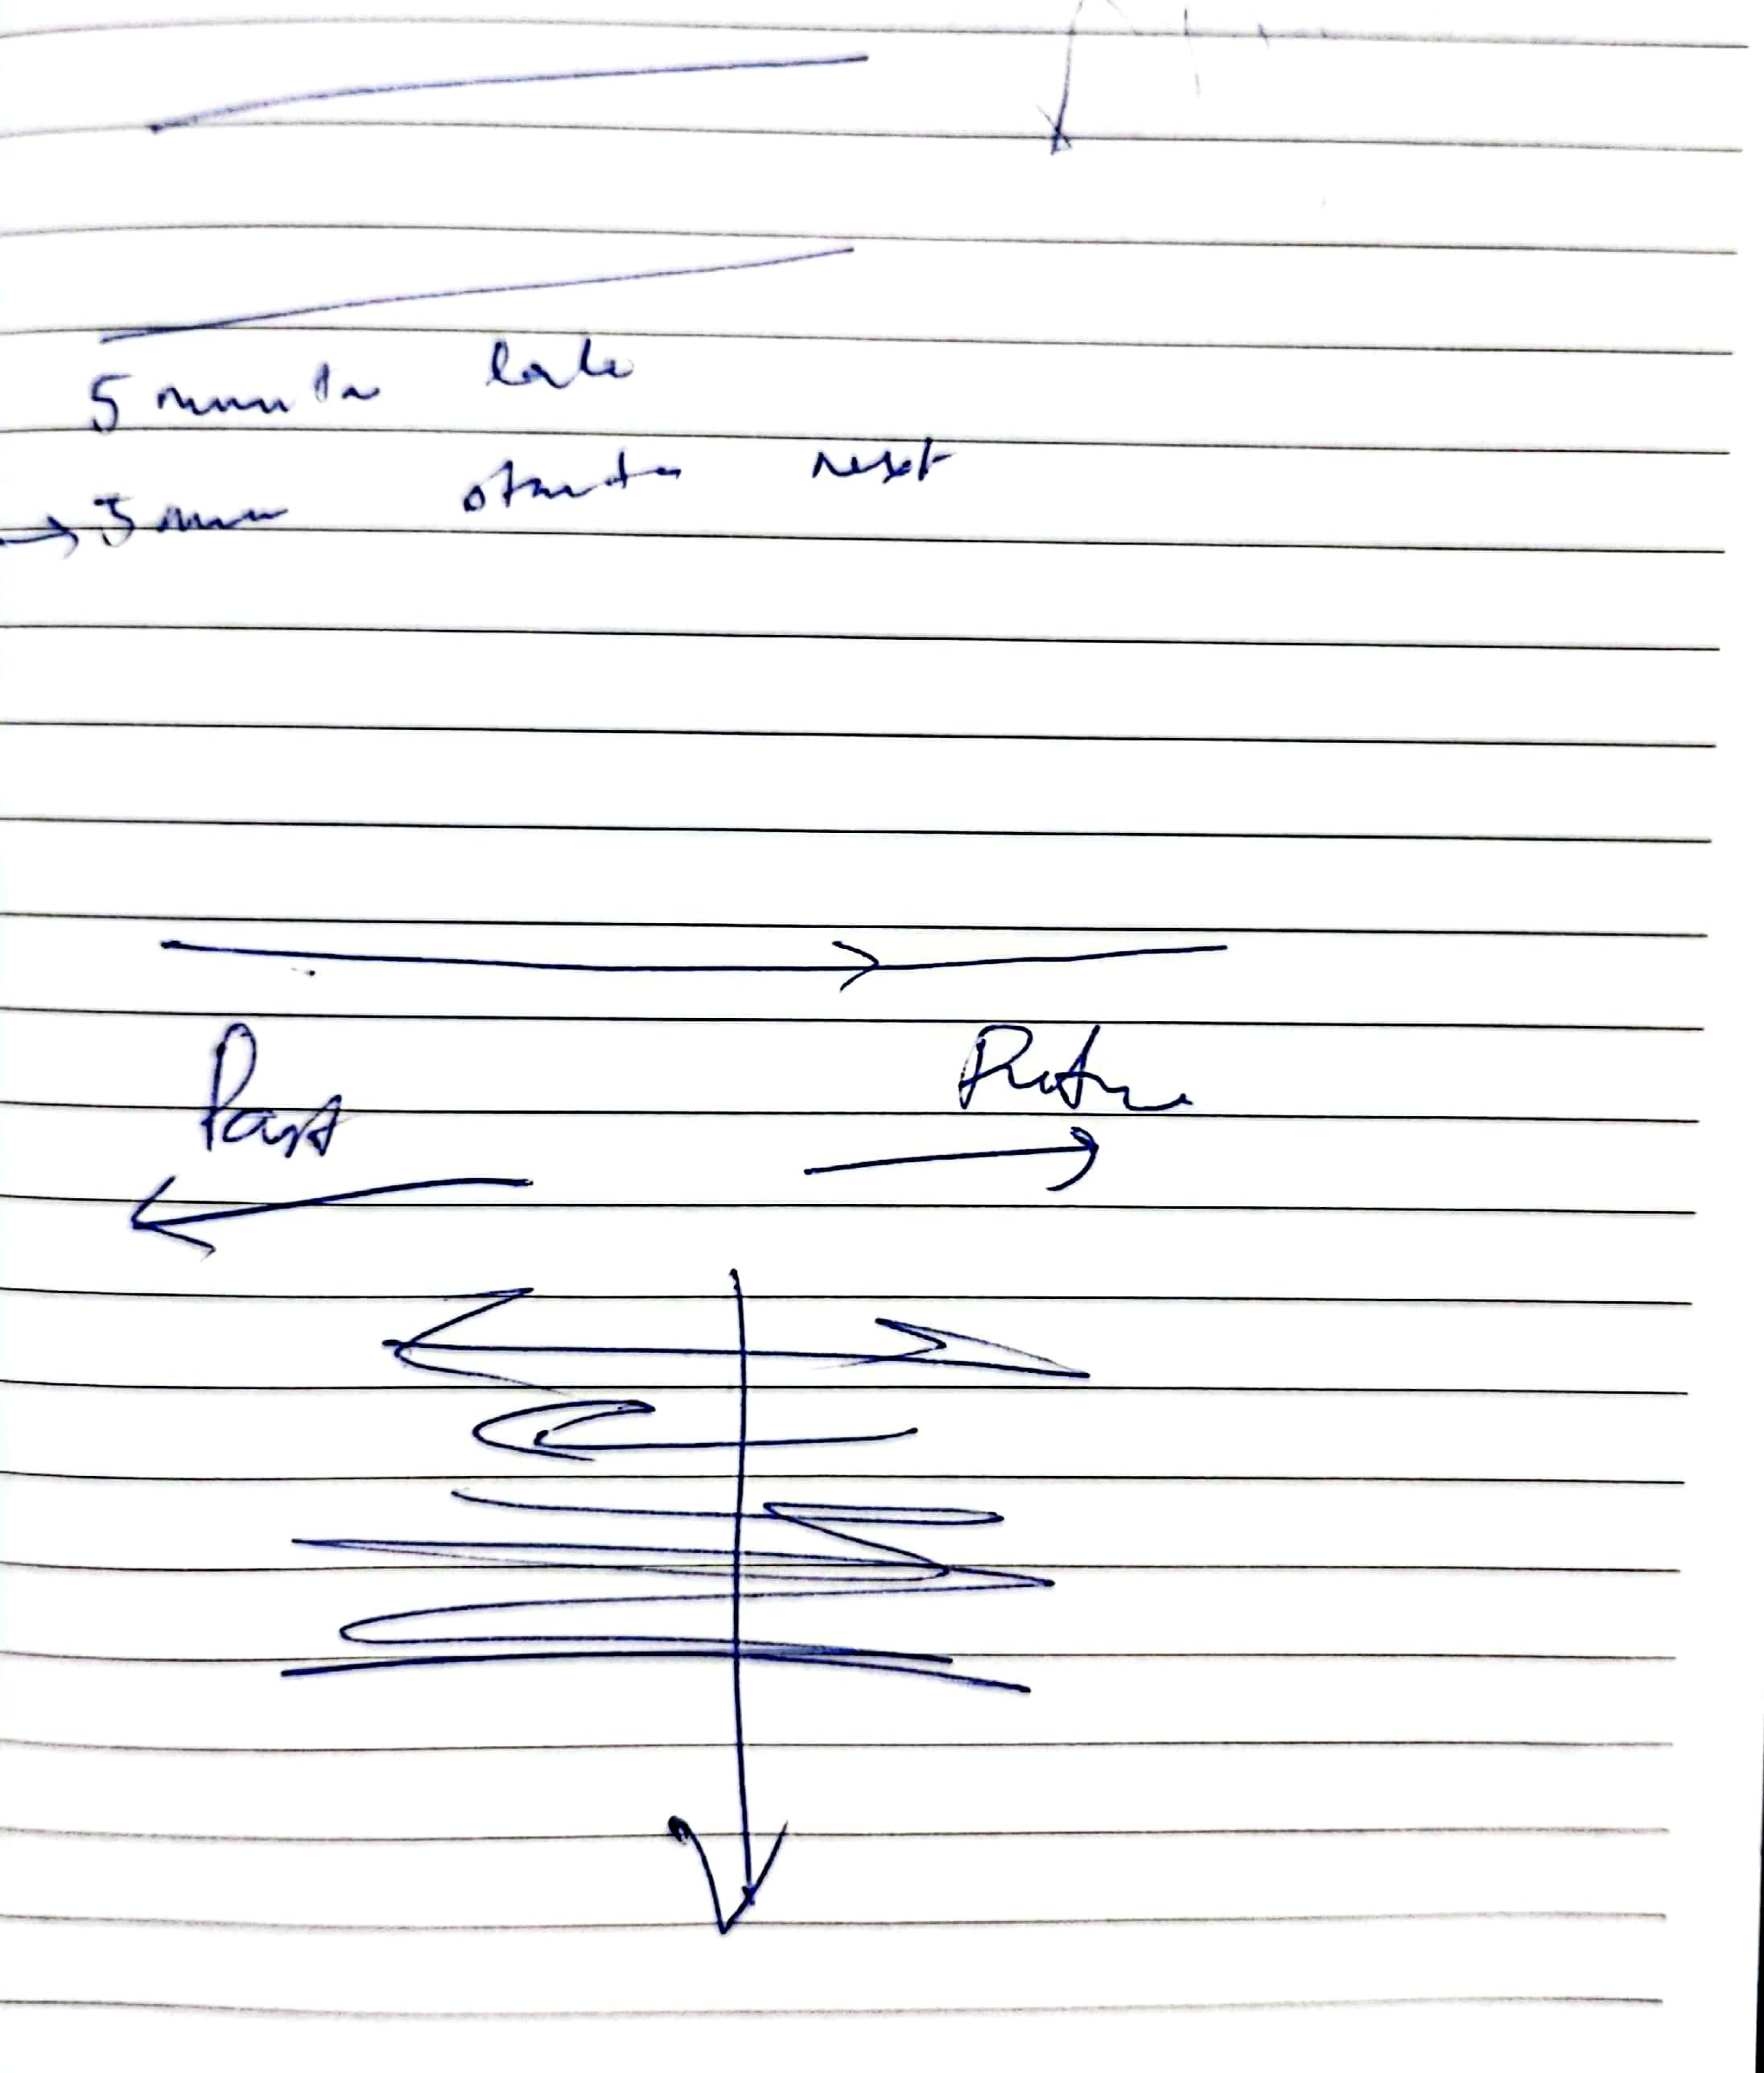 5 minute late
→ 5 min starts next
Past
Future